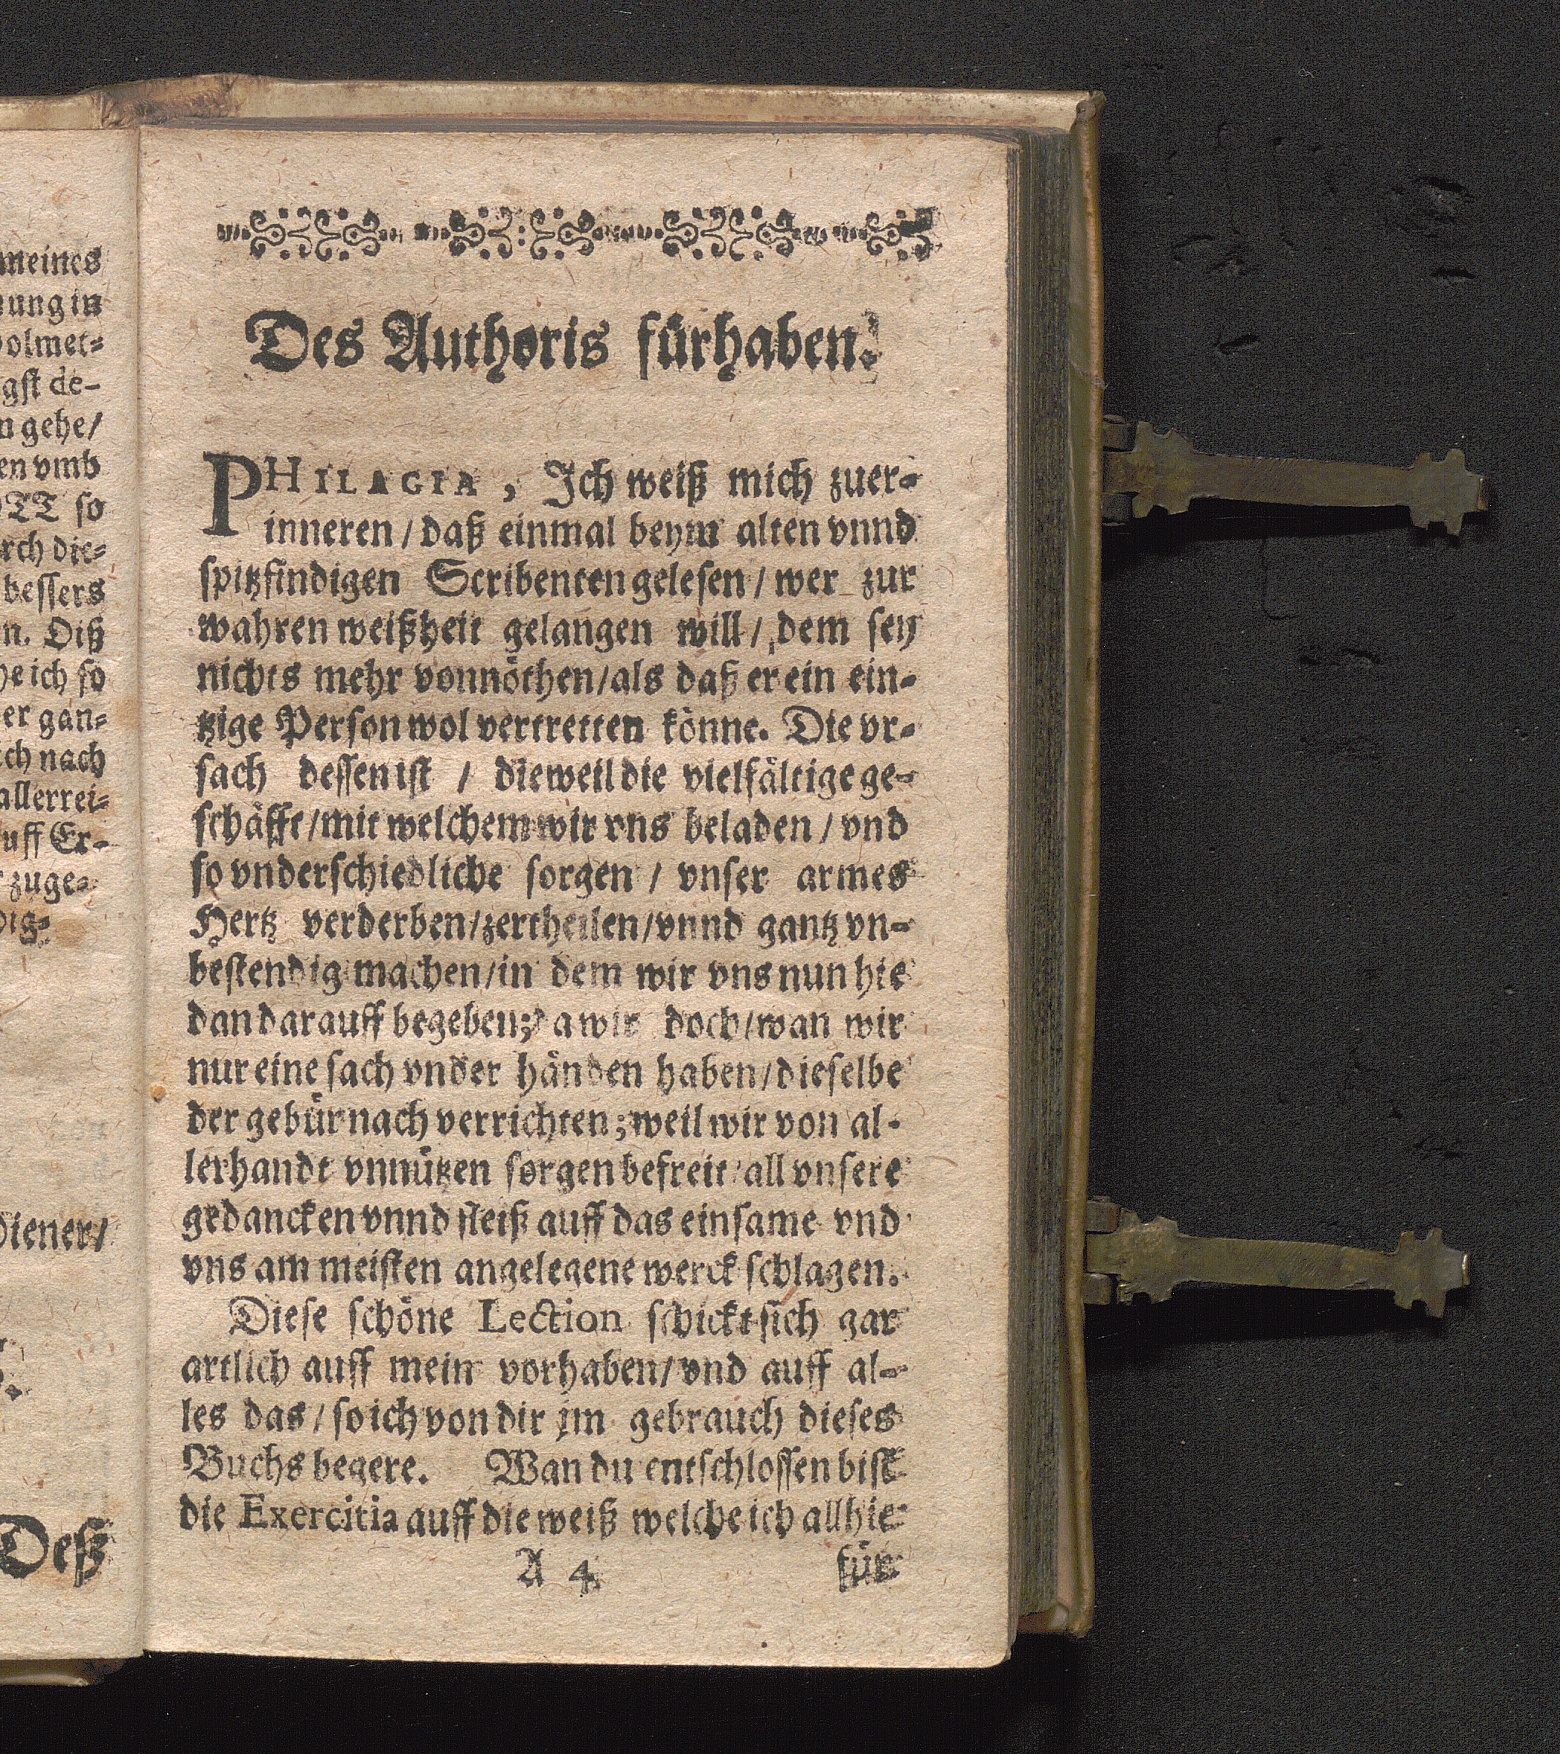 meines
nung in
olmet-
gst de-
n gehe/
en vmb
OTT so
rch die-
bessers
n. Diß
he ich so
er gan-
ch nach
allerrei-
uff Er-
zuge-
dig-
diener/
Deß
Des Authoris fürhaben.
PHILAGIA, Ich weiß mich zuer-
inneren / daß einmal beym alten vnnd
spitzfindigen Scribenten gelesen / wer zur
wahren weißheit gelangen will / dem sey
nichts mehr vonnöthen / als daß er ein ein-
tzige Person wol vertretten könne. Die vr-
sach dessen ist / dieweil die vielfältige ge-
schäfft / mit welchem wir vns beladen / vnd
so vnderschiedliche sorgen / vnser armes
Hertz verderben / zertheilen / vnnd gantz vn-
bestendig machen / in dem wir vns nun hie
dan darauff begeben; da wir doch / wan wir
nur eine sach vnder händen haben / dieselbe
der gebür nach verrichten; weil wir von al-
lerhandt vnnützen sorgen befreit / all vnsere
gedancken vnnd fleiß auff das einsame vnd
vns am meisten angelegene werck schlagen.
Diese schöne Lection schickt sich gar
artlich auff mein vorhaben / vnd auff al-
les das / so ich von dir im gebrauch dieses
Buchs begere. Wan du entschlossen bist
die Exercitia auff die weiß welche ich allhie
A 4
für